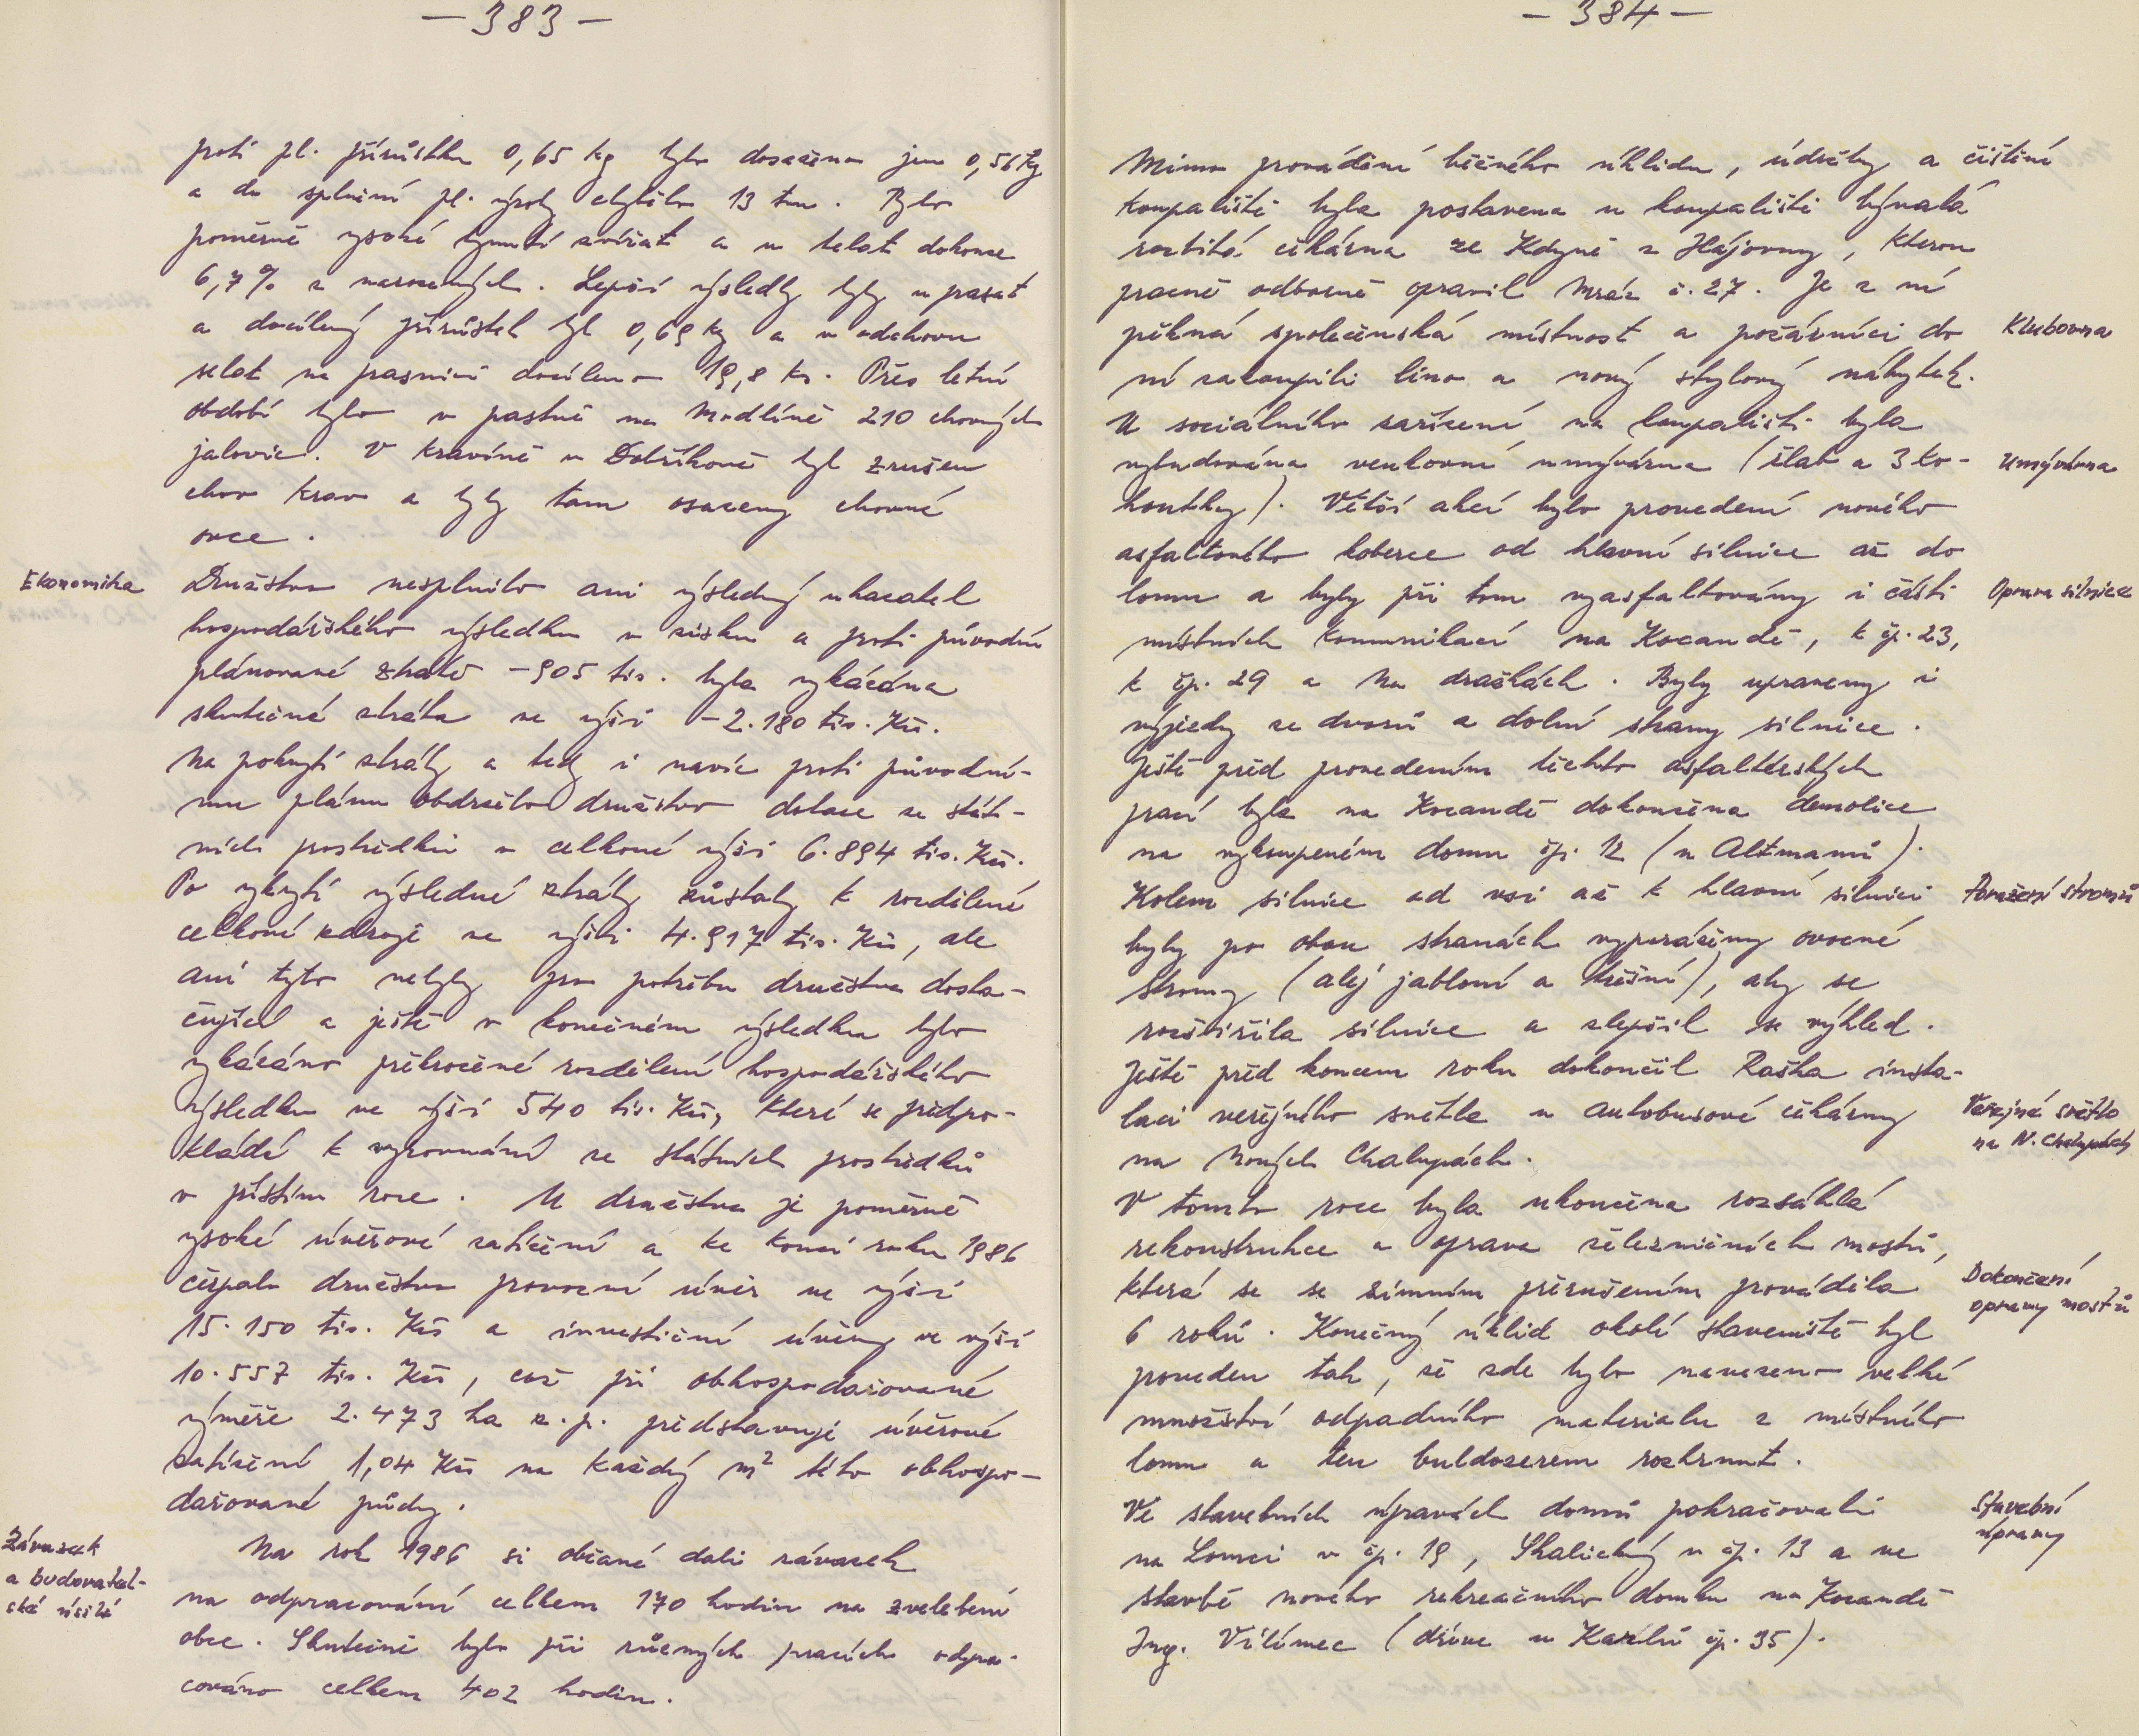 — 383 —
proti pl. přírůstku 0,65 kg bylo dosaženo jen 0,56 kg
a do splnění pl. výroby chybělo 13 tun. Bylo
poměrně vysoké hynutí zvířat a u telat dokonce
6,7% z narozených. Lepší výsledky byly u prasat
a docílený přírůstek byl 0,69 kg a v odchovu
selat na prasnici docíleno 19,8 ks. Přes letní
období bylo v pastvě na Modlíně 210 chovných
jalovic. V kravíně v Dobříkově byl zrušen
chov krav a byly tam osazeny chovné
ovce.
Ekonomika
Družstvo nesplnilo ani výsledný ukazatel
hospodářského výsledku v zisku a proti původní
plánované ztrátě -905 tis. byla vykázána
skutečná ztráta ve výši -2.180 tis. Kčs.
Na pokrytí ztráty a tedy i navíc proti původní-
mu plánu obdrželo družstvo dotace ze stát-
ních prostředků v celkové výši 6.894 tis. Kčs.
Po krytí výsledné ztráty zůstaly k rozdělení
celkové zdroje ve výši 4.917 tis. Kčs, ale
ani tyto nebyly pro potřebu družstva dosta-
čující a ještě v konečném výsledku bylo
vykázáno překročené rozdělení hospodářského
výsledku ve výši 540 tis. Kčs, které se předpo-
kládá k vyrovnání ze státních prostředků
v příštím roce. U družstva je poměrně
vysoké úvěrové zatížení a ke konci roku 1986
čerpalo družstvo provozní úvěr ve výši
15.150 tis. Kčs a investiční úvěry ve výši
10.557 tis. Kčs, což při obhospodařované
výměře 2.473 ha z.p. představuje úvěrové
zatížení 1,04 Kčs na každý m² této obhospo-
dařované půdy.
Závazek
a budovatel-
ské úsilí
Na rok 1986 si občané dali závazek
na odpracování celkem 170 hodin na zvelebení
obce. Skutečně bylo při různých pracích odpra-
cováno celkem 402 hodin.
— 384 —
Mimo provádění běžného úklidu, údržby a čištění
koupaliště byla postavena u koupaliště bývalá
rozbitá čekárna ze Kdyně z Hájovny, kterou
pracně odborně opravil Mráz č. 27. Je z ní
pěkná společenská místnost a požárníci do
Klubovna
ní zakoupili lino a nový stylový nábytek.
U sociálního zařízení na koupališti byla
vybudována venkovní umývárna (žlab a 3 ko-
Umývárna
houtky). Větší akcí bylo provedení nového
asfaltového koberce od hlavní silnice až do
lomu a byly při tom vyasfaltovány i části
Oprava silnice
místních komunikací na Kocandě, k čp. 23,
k čp. 29 a Na dražkách. Byly upraveny i
výjezdy ze dvorů a dolní strany silnice.
Ještě před provedením těchto asfaltérských
prací byla na Kocandě dokončena demolice
na vykoupeném domu čp. 12 (u Altmanů).
Kolem silnice od vsi až k hlavní silnici
Poražení stromů
byly po obou stranách vyporáženy ovocné
stromy (alej jabloní a třešní), aby se
rozšířila silnice a zlepšil se výhled.
Ještě před koncem roku dokončil Raška insta-
laci veřejného světla u autobusové čekárny
Veřejné světlo
na N. Chalupách
na Nových Chalupách.
V tomto roce byla ukončena rozsáhlá
rekonstrukce a oprava železničních mostů,
která se se zimním přerušením prováděla
Dokončení
opravy mostů
6 roků. Konečný úklid okolí staveniště byl
proveden tak, že zde bylo navezeno velké
množství odpadního materialu z místního
lomu a ten buldozerem rozhrnut.
Ve stavebních úpravách domů pokračovali
Stavební
úpravy
na Lomci v čp. 19, Skalický v čp. 13 a ve
stavbě nového rekreačního domku na Kocandě
Ing. Vilímec (dříve u Karlů čp. 35).